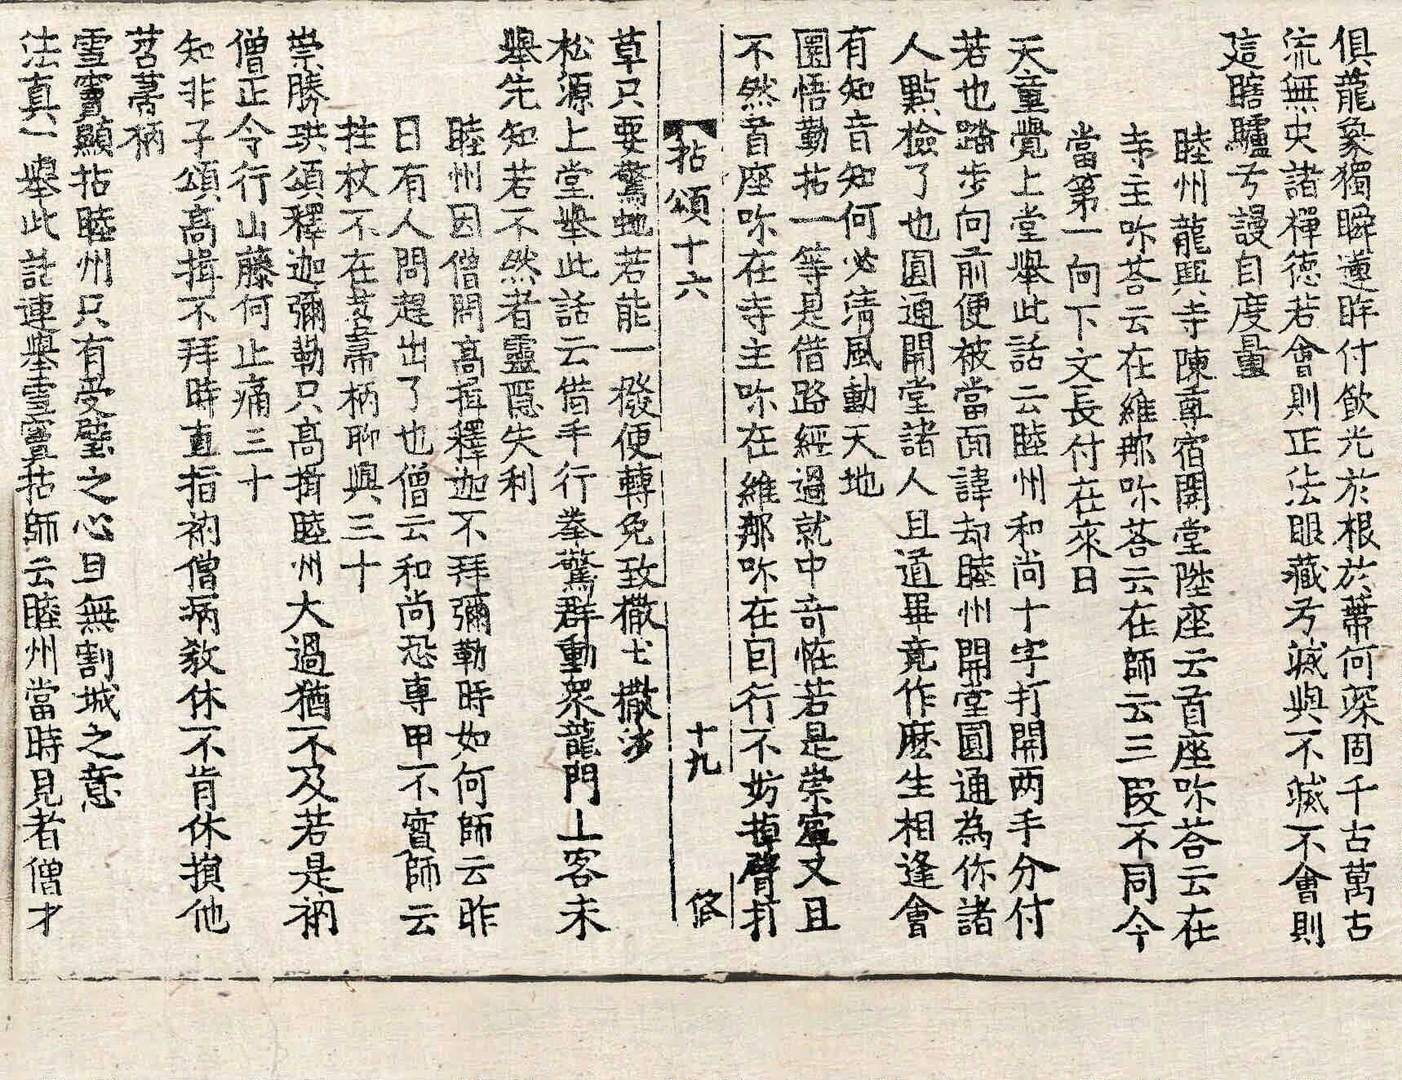 俱龍象獨瞬蓮眸付飲光於根於蔕何深固千古萬古
流無央諸禪德若會則正法眼藏兮滅與不滅不會則
這瞎驢兮謾自度量
睦州龍興寺陳尊宿開堂陞座云首座吢荅云在
寺主吢荅云在維那吢荅云在師云三段不同今
當第一向下文長付在來日
天童覺上堂舉此話云睦州和尚十字打開两手分付
若也踏步向前便被當面諱却睦州開堂圓通為你諸
人點檢了也圓通開堂諸人且道畢竟作麽生相逢會
有知音知何必淸風動天地
圜悟勤拈一等是借路經過就中奇恠若是崇寧又且
不然首座吢在寺主吢在維那吢在囙行不妨掉臂打
拈頌十六 十九 俢
草只要驚虵若能一撥便轉免致撒土撒沙
松源上堂舉此話云借手行拳驚群動衆龍門上客未
舉先知若不然者靈隱失利
睦州因僧問高揖釋迦不拜彌勒時如何師云昨
日有人問趕出了也僧云和尚恐專甲不實師云
拄杖不在苕菷柄聊與三十
崇勝珙頌釋迦彌勒只高揖睦州大過猶不及若是衲
僧正令行山藤何止痛三十
知非子頌高揖不拜時直指衲僧病敎休不肯休損他
苕菷柄
雪竇顯拈睦州只有受璧之心且無割城之意
法真一舉此話連舉雪竇拈師云睦州當時見者僧才